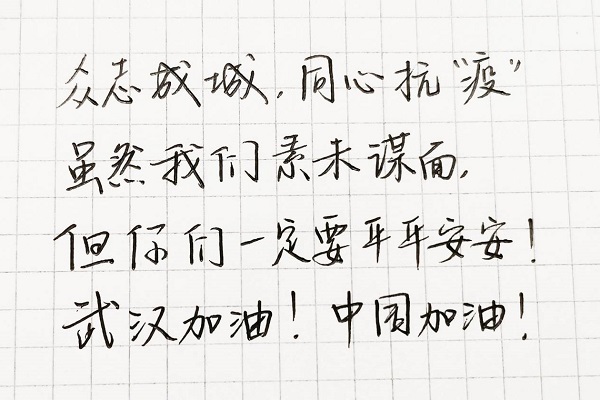 众志成城，同心抗“疫”
虽然我们素未谋面，
但你们一定要平平安安！
武汉加油！中国加油！